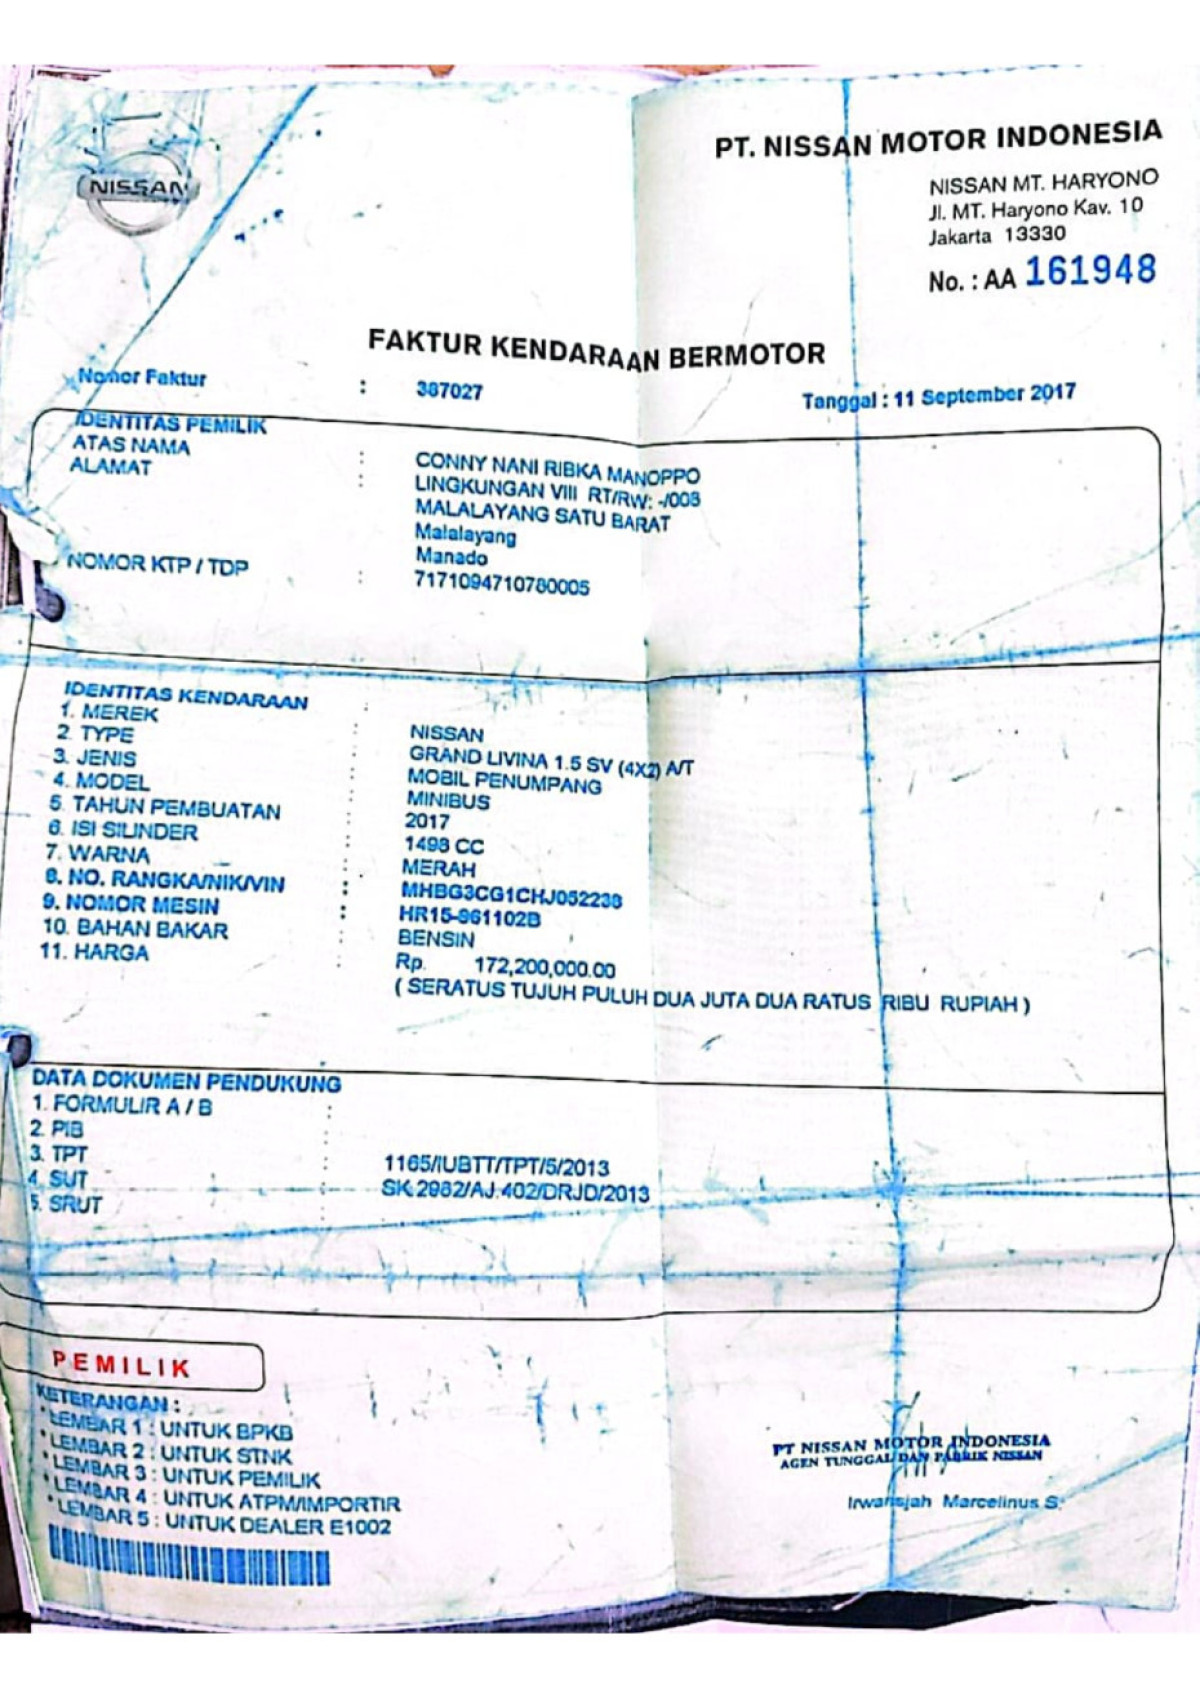 NISSAN
PT. NISSAN MOTOR INDONESIA
NISSAN MT. HARYONO
Jl. MT. Haryono Kav. 10
Jakarta 13330
No. : AA 161948
FAKTUR KENDARAAN BERMOTOR
Nomor Faktur : 387027 Tanggal : 11 September 2017
IDENTITAS PEMILIK
ATAS NAMA : CONNY NANI RIBKA MANOPPO
ALAMAT : LINGKUNGAN VIII RT/RW: -/008
MALALAYANG SATU BARAT
Malalayang
Manado
NOMOR KTP / TDP : 7171094710780005
IDENTITAS KENDARAAN :
1. MEREK : NISSAN
2. TYPE : GRAND LIVINA 1.5 SV (4X2) A/T
3. JENIS : MOBIL PENUMPANG
4. MODEL : MINIBUS
5. TAHUN PEMBUATAN : 2017
6. ISI SILINDER : 1498 CC
7. WARNA : MERAH
8. NO. RANGKA/NIK/VIN : MHBG3CG1CHJ052238
9. NOMOR MESIN : HR15-961102B
10. BAHAN BAKAR : BENSIN
11. HARGA : Rp. 172,200,000.00
( SERATUS TUJUH PULUH DUA JUTA DUA RATUS RIBU RUPIAH )
DATA DOKUMEN PENDUKUNG
1. FORMULIR A / B :
2. PIB :
3. TPT : 1165/IUBTT/TPT/5/2013
4. SUT : SK.2982/AJ.402/DRJD/2013
5. SRUT :
PEMILIK
KETERANGAN :
* LEMBAR 1 : UNTUK BPKB
* LEMBAR 2 : UNTUK STNK
* LEMBAR 3 : UNTUK PEMILIK
* LEMBAR 4 : UNTUK ATPM/IMPORTIR
* LEMBAR 5 : UNTUK DEALER E1002
PT NISSAN MOTOR INDONESIA
AGEN TUNGGAL DAN PABRIK NISSAN
Irwansjah Marcelinus S.